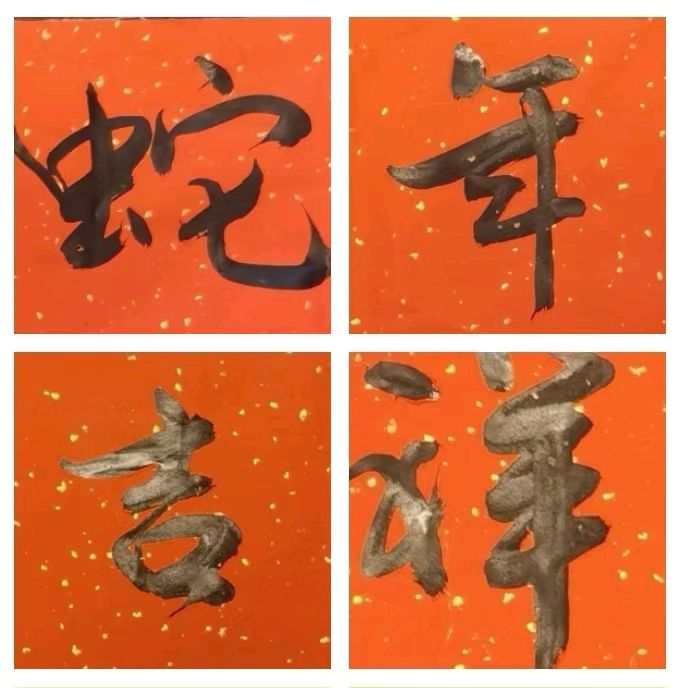 蛇年
吉祥